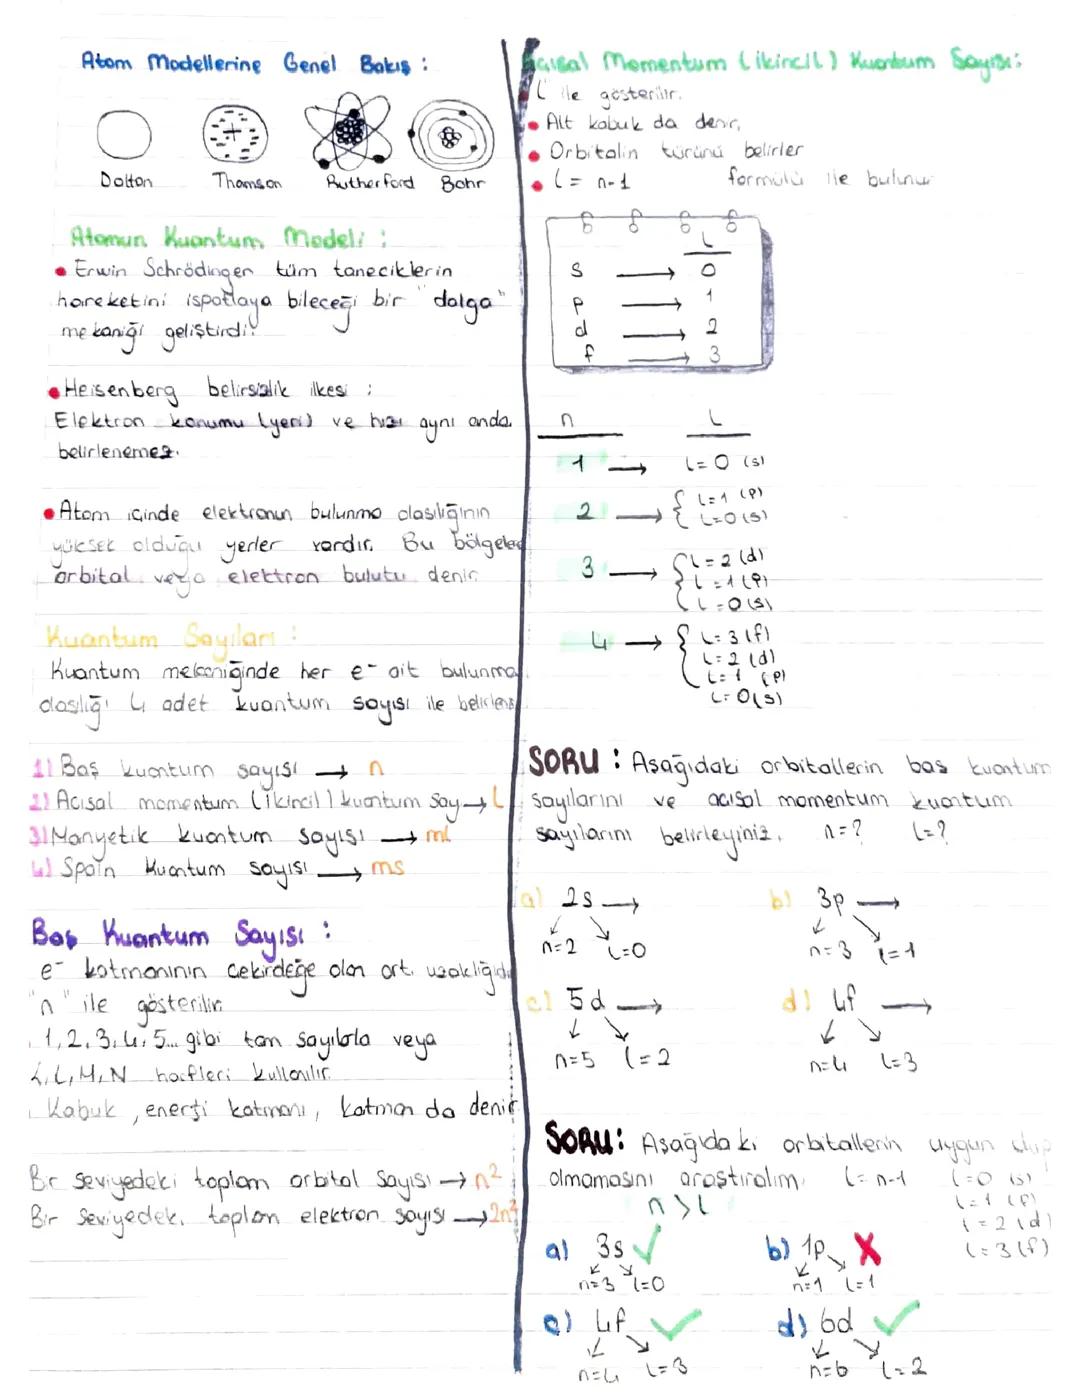 Atom Modellerine Genel Bakış :
Dalton Thomson Rutherford Bohr
Atomun Kuantum Modeli :
• Erwin Schrödinger tüm taneciklerin
hareketini ispatlaya bileceği bir "dalga"
mekaniği geliştirdi.
• Heisenberg belirsizlik ilkesi :
Elektron konumu (yeri) ve hızı aynı anda
belirlenemez.
• Atom içinde elektronun bulunma olasılığının
yüksek olduğu yerler vardır. Bu bölgelere
orbital veya elektron bulutu denir.
Kuantum Sayıları :
Kuantum mekaniğinde her e⁻ ait bulunma
olasılığı 4 adet kuantum sayısı ile belirlenir
1) Baş kuantum sayısı → n
2) Acısal momentum (ikincil) kuantum say → l
3) Manyetik kuantum sayısı → ml
4) Spain Kuantum sayısı → ms
Baş Kuantum Sayısı :
e⁻ katmanının cekirdeğe olan ort. uzaklığıdır
"n" ile gösterilir.
1, 2, 3, 4, 5... gibi tam sayılarla veya
K, L, M, N harfleri kullanılır.
Kabuk, enerji katmanı, katman da denir
Bir seviyedeki toplam orbital sayısı → n²
Bir seviyedek. toplam elektron sayısı → 2n²
Açısal Momentum (ikincil) Kuantum Sayısı:
"l" ile gösterilir.
• Alt kabuk da denir.
• Orbitalin türünü belirler
• l = n-1 formülü ile bulunur
l
s → 0
p → 1
d → 2
f → 3
n l
1 → l=0 (s)
2 → { l=1 (p)
l=0 (s)
3 → { l=2 (d)
l=1 (p)
l=0 (s)
4 → { l=3 (f)
l=2 (d)
l=1 (p)
l=0 (s)
SORU : Aşağıdaki orbitallerin baş kuantum
sayılarını ve acısal momentum kuantum
sayılarını belirleyiniz. n=? l=?
a) 2s → b) 3p →
n=2 l=0 n=3 l=1
c) 5d → d) 4f →
n=5 l=2 n=4 l=3
SORU: Aşağıdaki orbitallerin uygun olup
olmamasını araştıralım. l=n-1 l=0 (s)
n>l l=1 (p)
l=2 (d)
a) 3s ✓ b) 1p X l=3 (f)
n=3 l=0 n=1 l=1
c) 4f ✓ d) 6d ✓
n=4 l=3 n=6 l=2